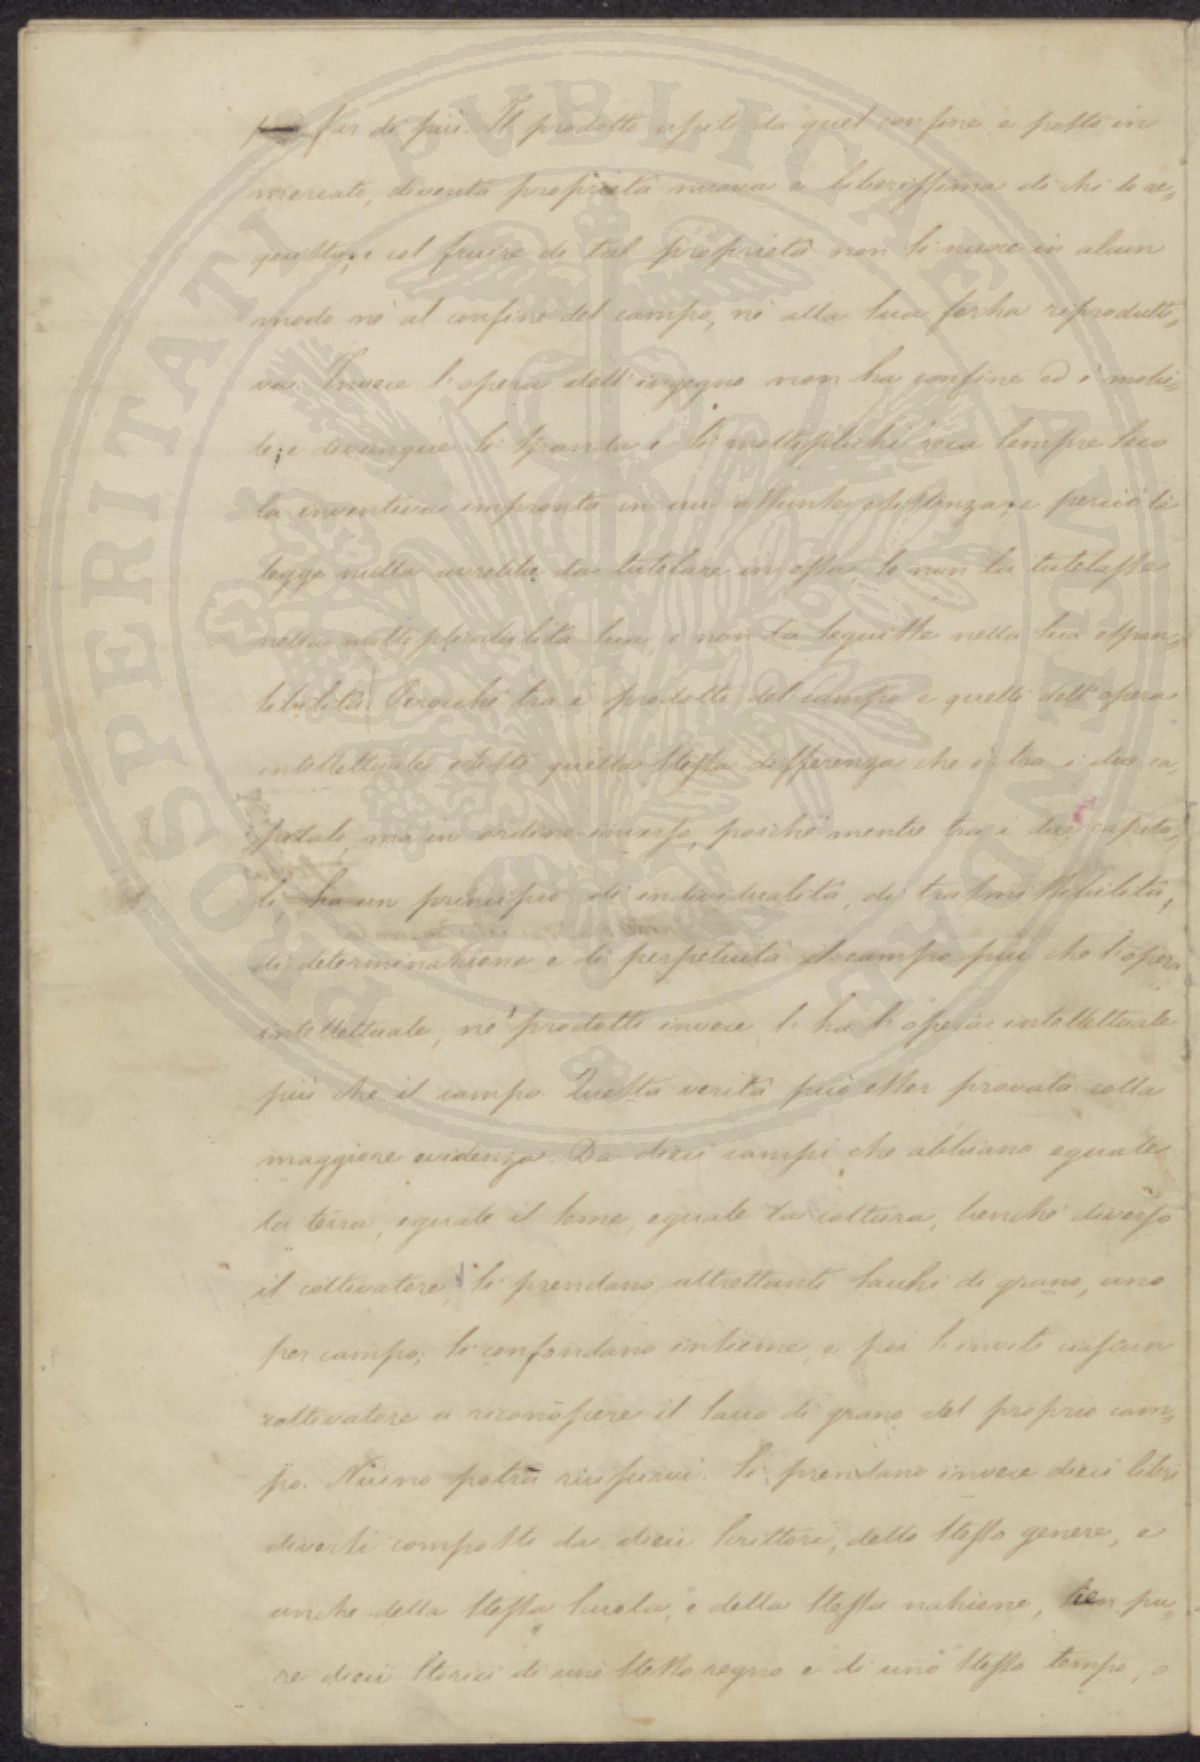 far di più. Il prodotto uscito da quel confine e posto in
mercato, diventa proprietà nuova e liberissima di chi lo ac-
quista, e col fruire di tal proprietà non si nuoce in alcun
modo nè al confine del campo, nè alla sua forza riprodutti-
va. Invece l'opera dell'ingegno non ha confine ed è mobi-
le; e dovunque si spanda e si moltiplichi reca sempre seco
la inventiva impronta in cui assunse esistenza; e perciò la
legge nulla avrebbe da tutelare in essa se non la tutelasse
nella moltiplicabilità sua, e non la seguisse nella sua espan-
sibilità. Perocchè tra i prodotti del campo e quelli dell'opera
intellettuale esiste quella stessa differenza che è tra i due ca-
pitali, ma in ordine inverso, poichè mentre tra i due capita-
li ha un principio di individualità, di trasmissibilità,
di determinazione e di perpetuità il campo più che l'opera
intellettuale, nè prodotti invece l'ha l'opera intellettuale
più che il campo. Questa verità può esser provata colla
maggiore evidenza. Da dieci campi che abbiano eguale
la terra, eguale il seme, eguale la coltura, benchè diverso
il coltivatore, si prendano altrettanti sacchi di grano, uno
per campo; si confondano insieme, e poi s'inviti ciascun
coltivatore a riconoscere il sacco di grano del proprio cam-
po. Niuno potrà riuscirvi. Si prendano invece dieci libri
diversi composti da dieci scrittori, dello stesso genere, e
anche della stessa scuola, e della stessa nazione, sien pu-
re dieci storici di uno stesso regno e di uno stesso tempo, o